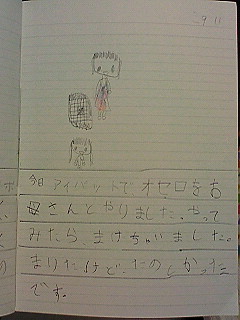 29 11
今日アイパットでオセロをお
母さんとやりました。やって
みたら、まけちゃいました。
まけたけど、たのしかった
です。